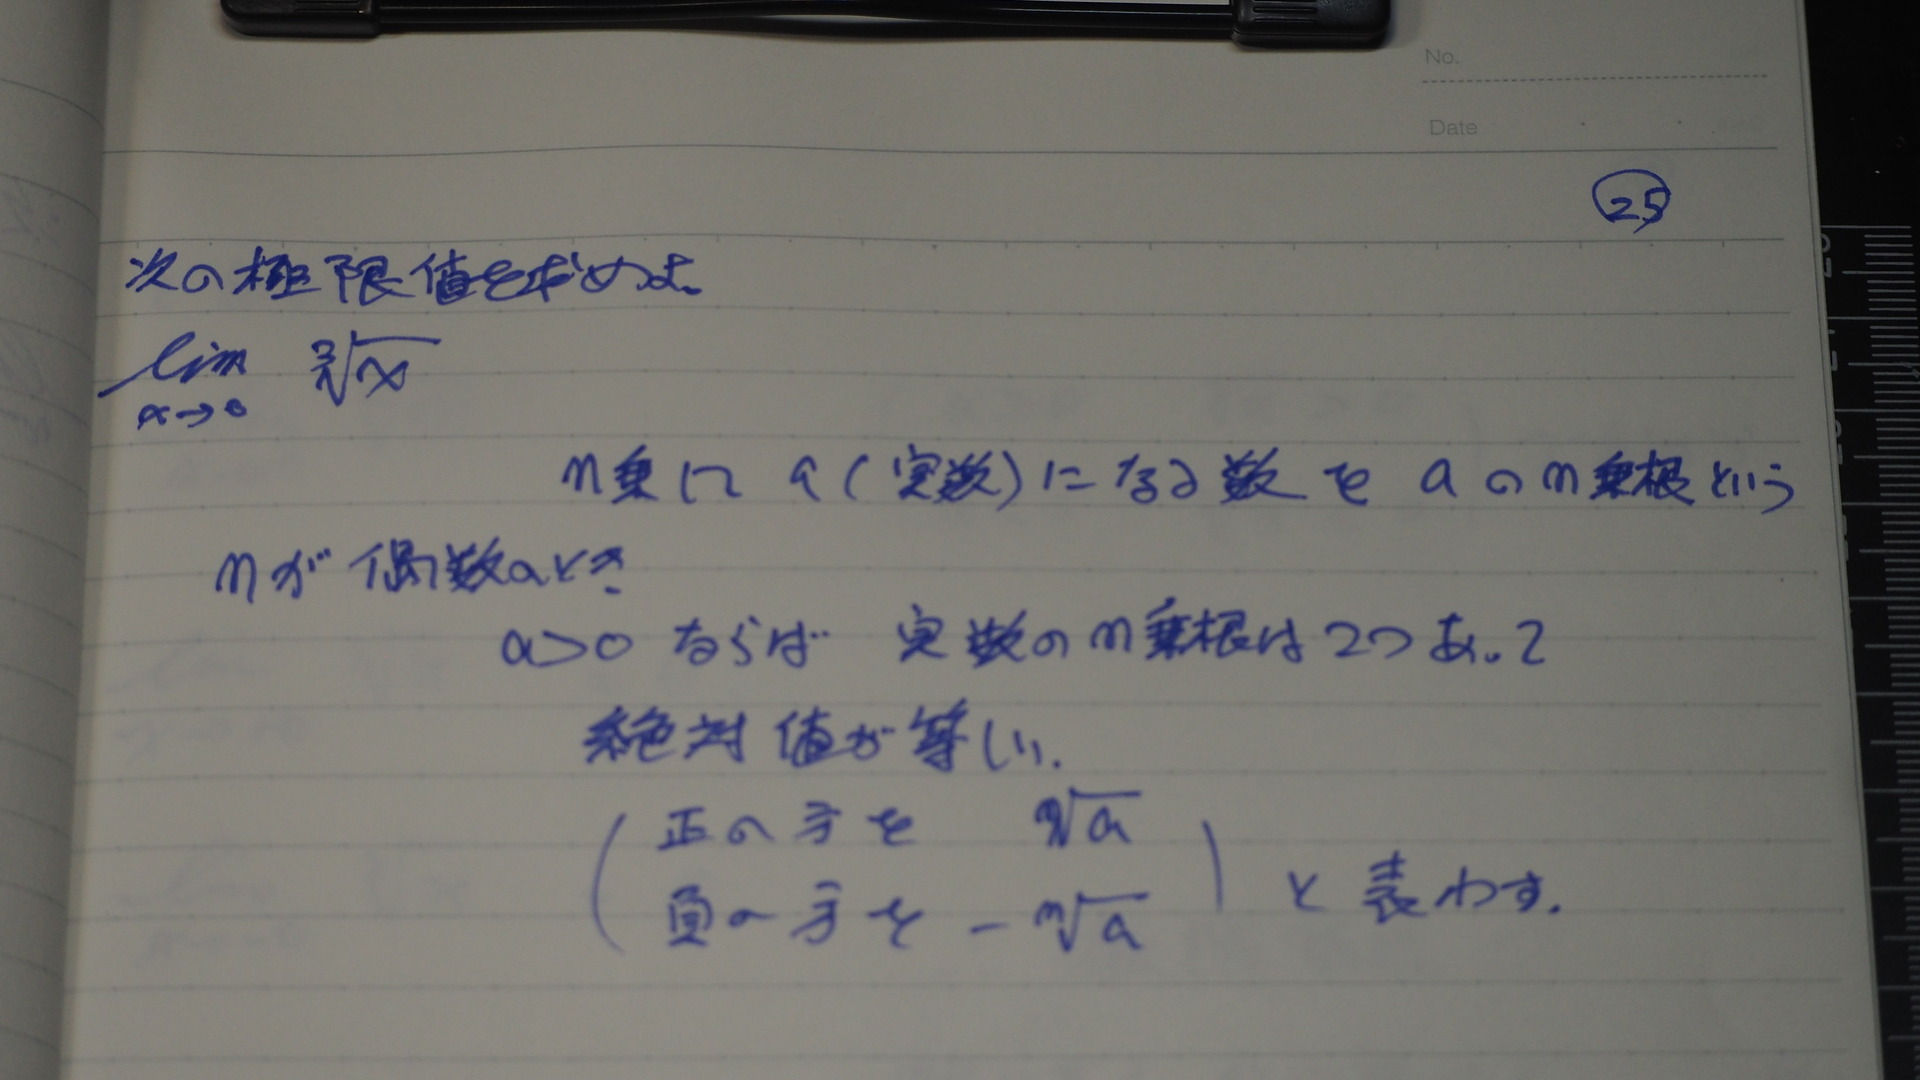 No.
Date
㉕
次の極限値を求めよ。
lim ³√x
x→0
n乗して a(実数)になる数を aのn乗根という
nが偶数のとき
a>0 ならば 実数のn乗根は2つあって
絶対値が等しい.
正の方を ⁿ√a
負の方を -ⁿ√a と表わす.